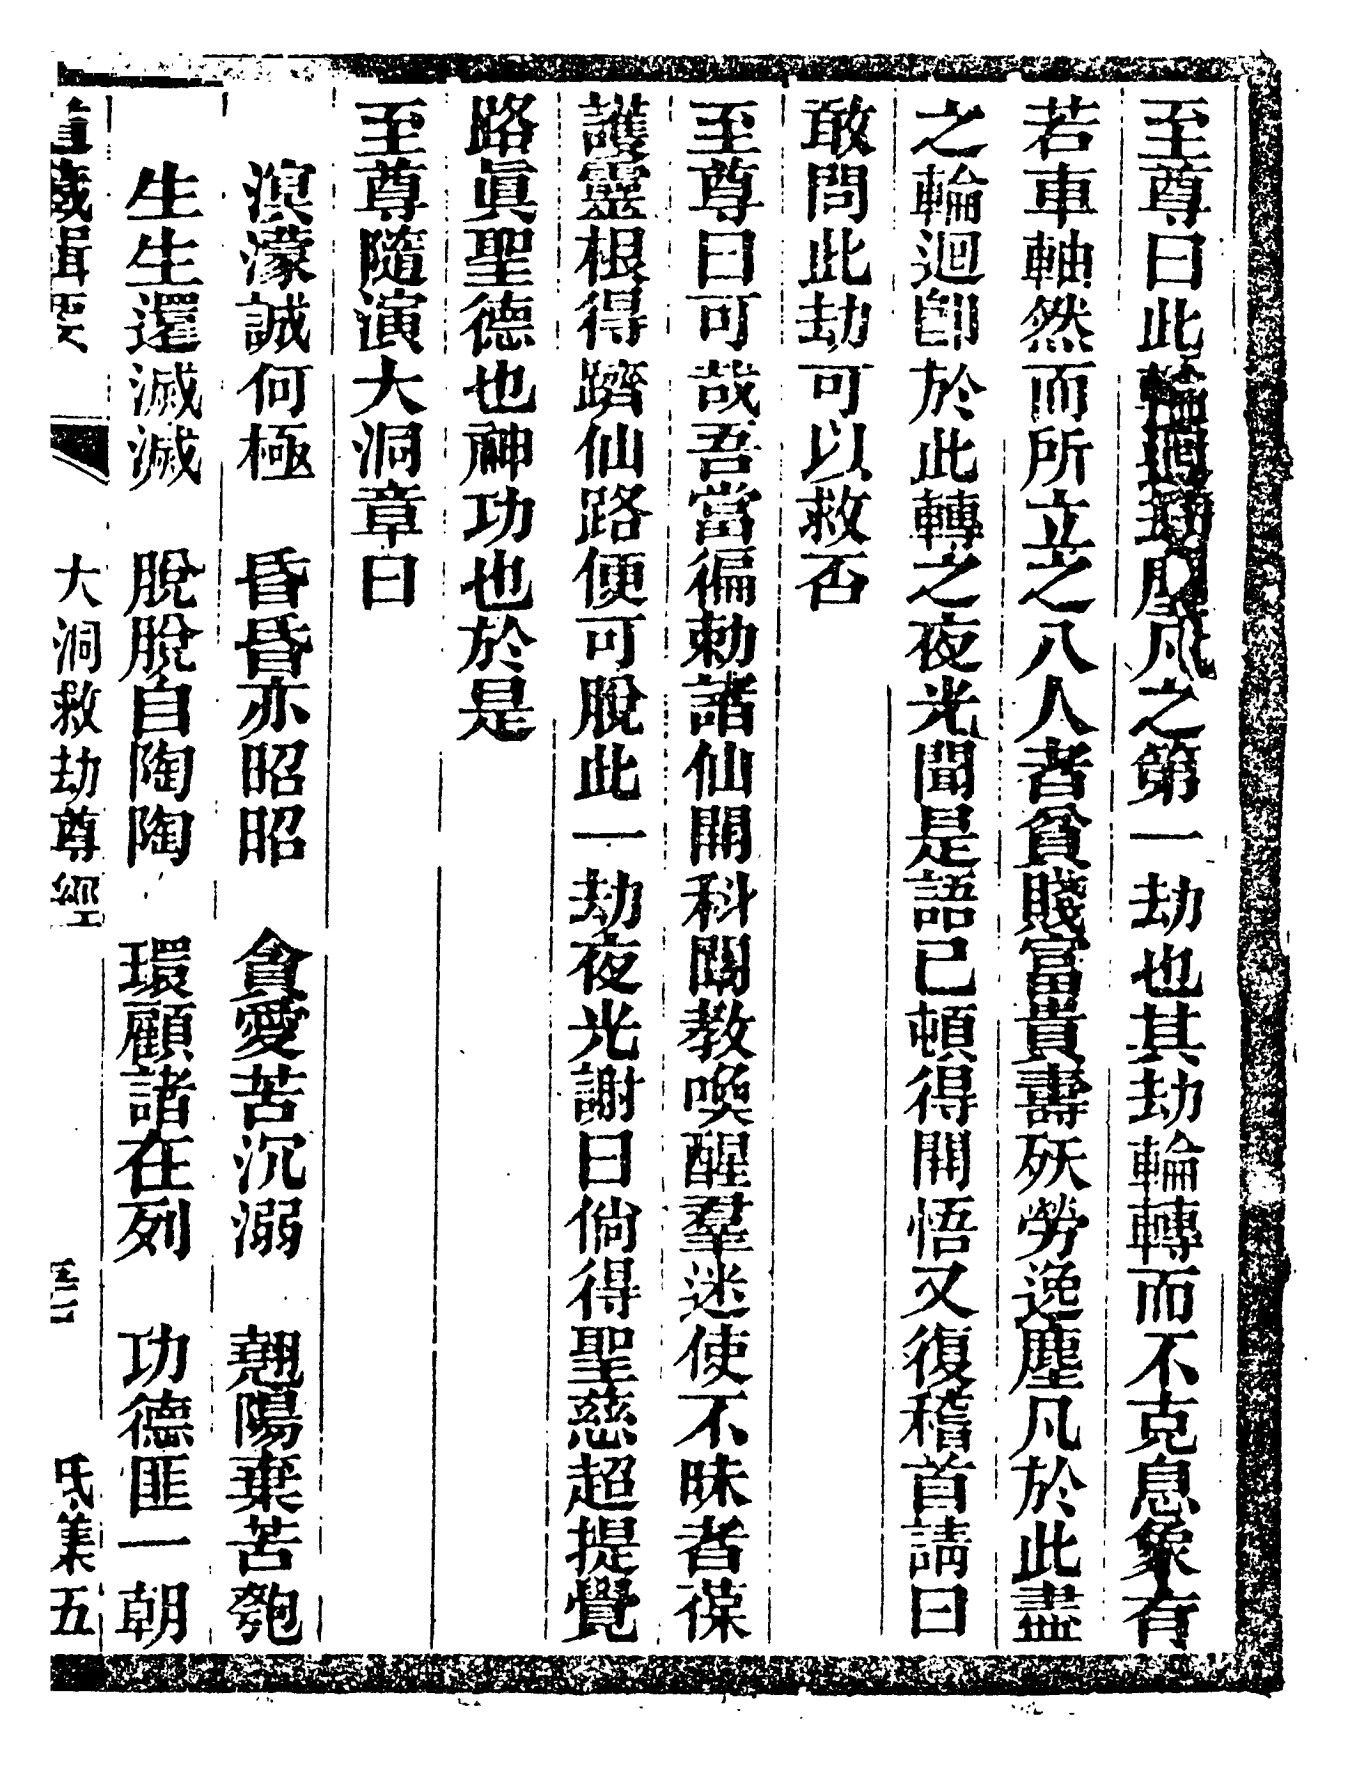 至尊曰此輪迴劫塵凡之第一劫也其劫輪轉而不克息象有
若車軸然而所立之八人者貧賤富貴壽殀勞逸塵凡於此盡
之輪迴卽於此轉之夜光聞是語已頓得開悟又復稽首請曰
敢問此劫可以救否
至尊曰可哉吾當徧勅諸仙開科闡教喚醒羣迷使不昧者葆
護靈根得躋仙路便可脫此一劫夜光謝曰倘得聖慈超提覺
路眞聖德也神功也於是
至尊隨演大洞章曰
溟濛誠何極　昏昏亦昭昭　貪愛苦沉溺　翹陽棄苦匏
生生還滅滅　脫脫自陶陶　環顧諸在列　功德匪一朝
道藏輯要　大洞救劫尊經　氐集五